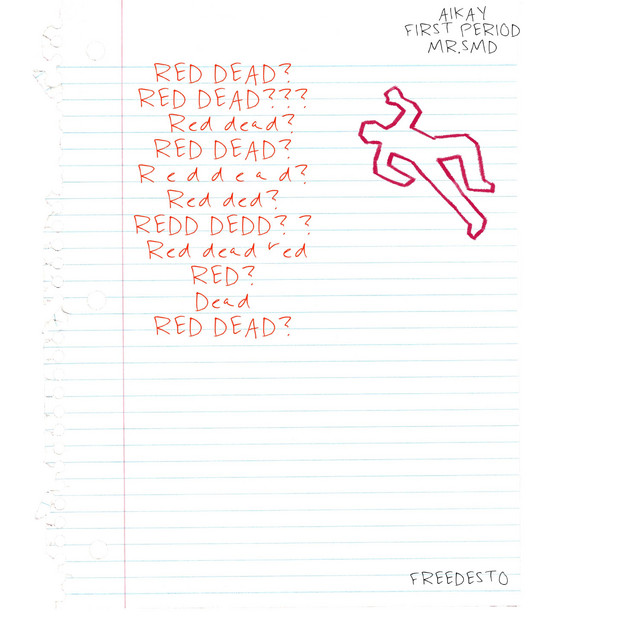 AIKAY
FIRST PERIOD
MR.SMD
RED DEAD?
RED DEAD???
Red dead?
RED DEAD?
R e d d e a d ?
Red ded?
REDD DEDD? ?
Red dead red
RED?
Dead
RED DEAD?
FREEDESTO